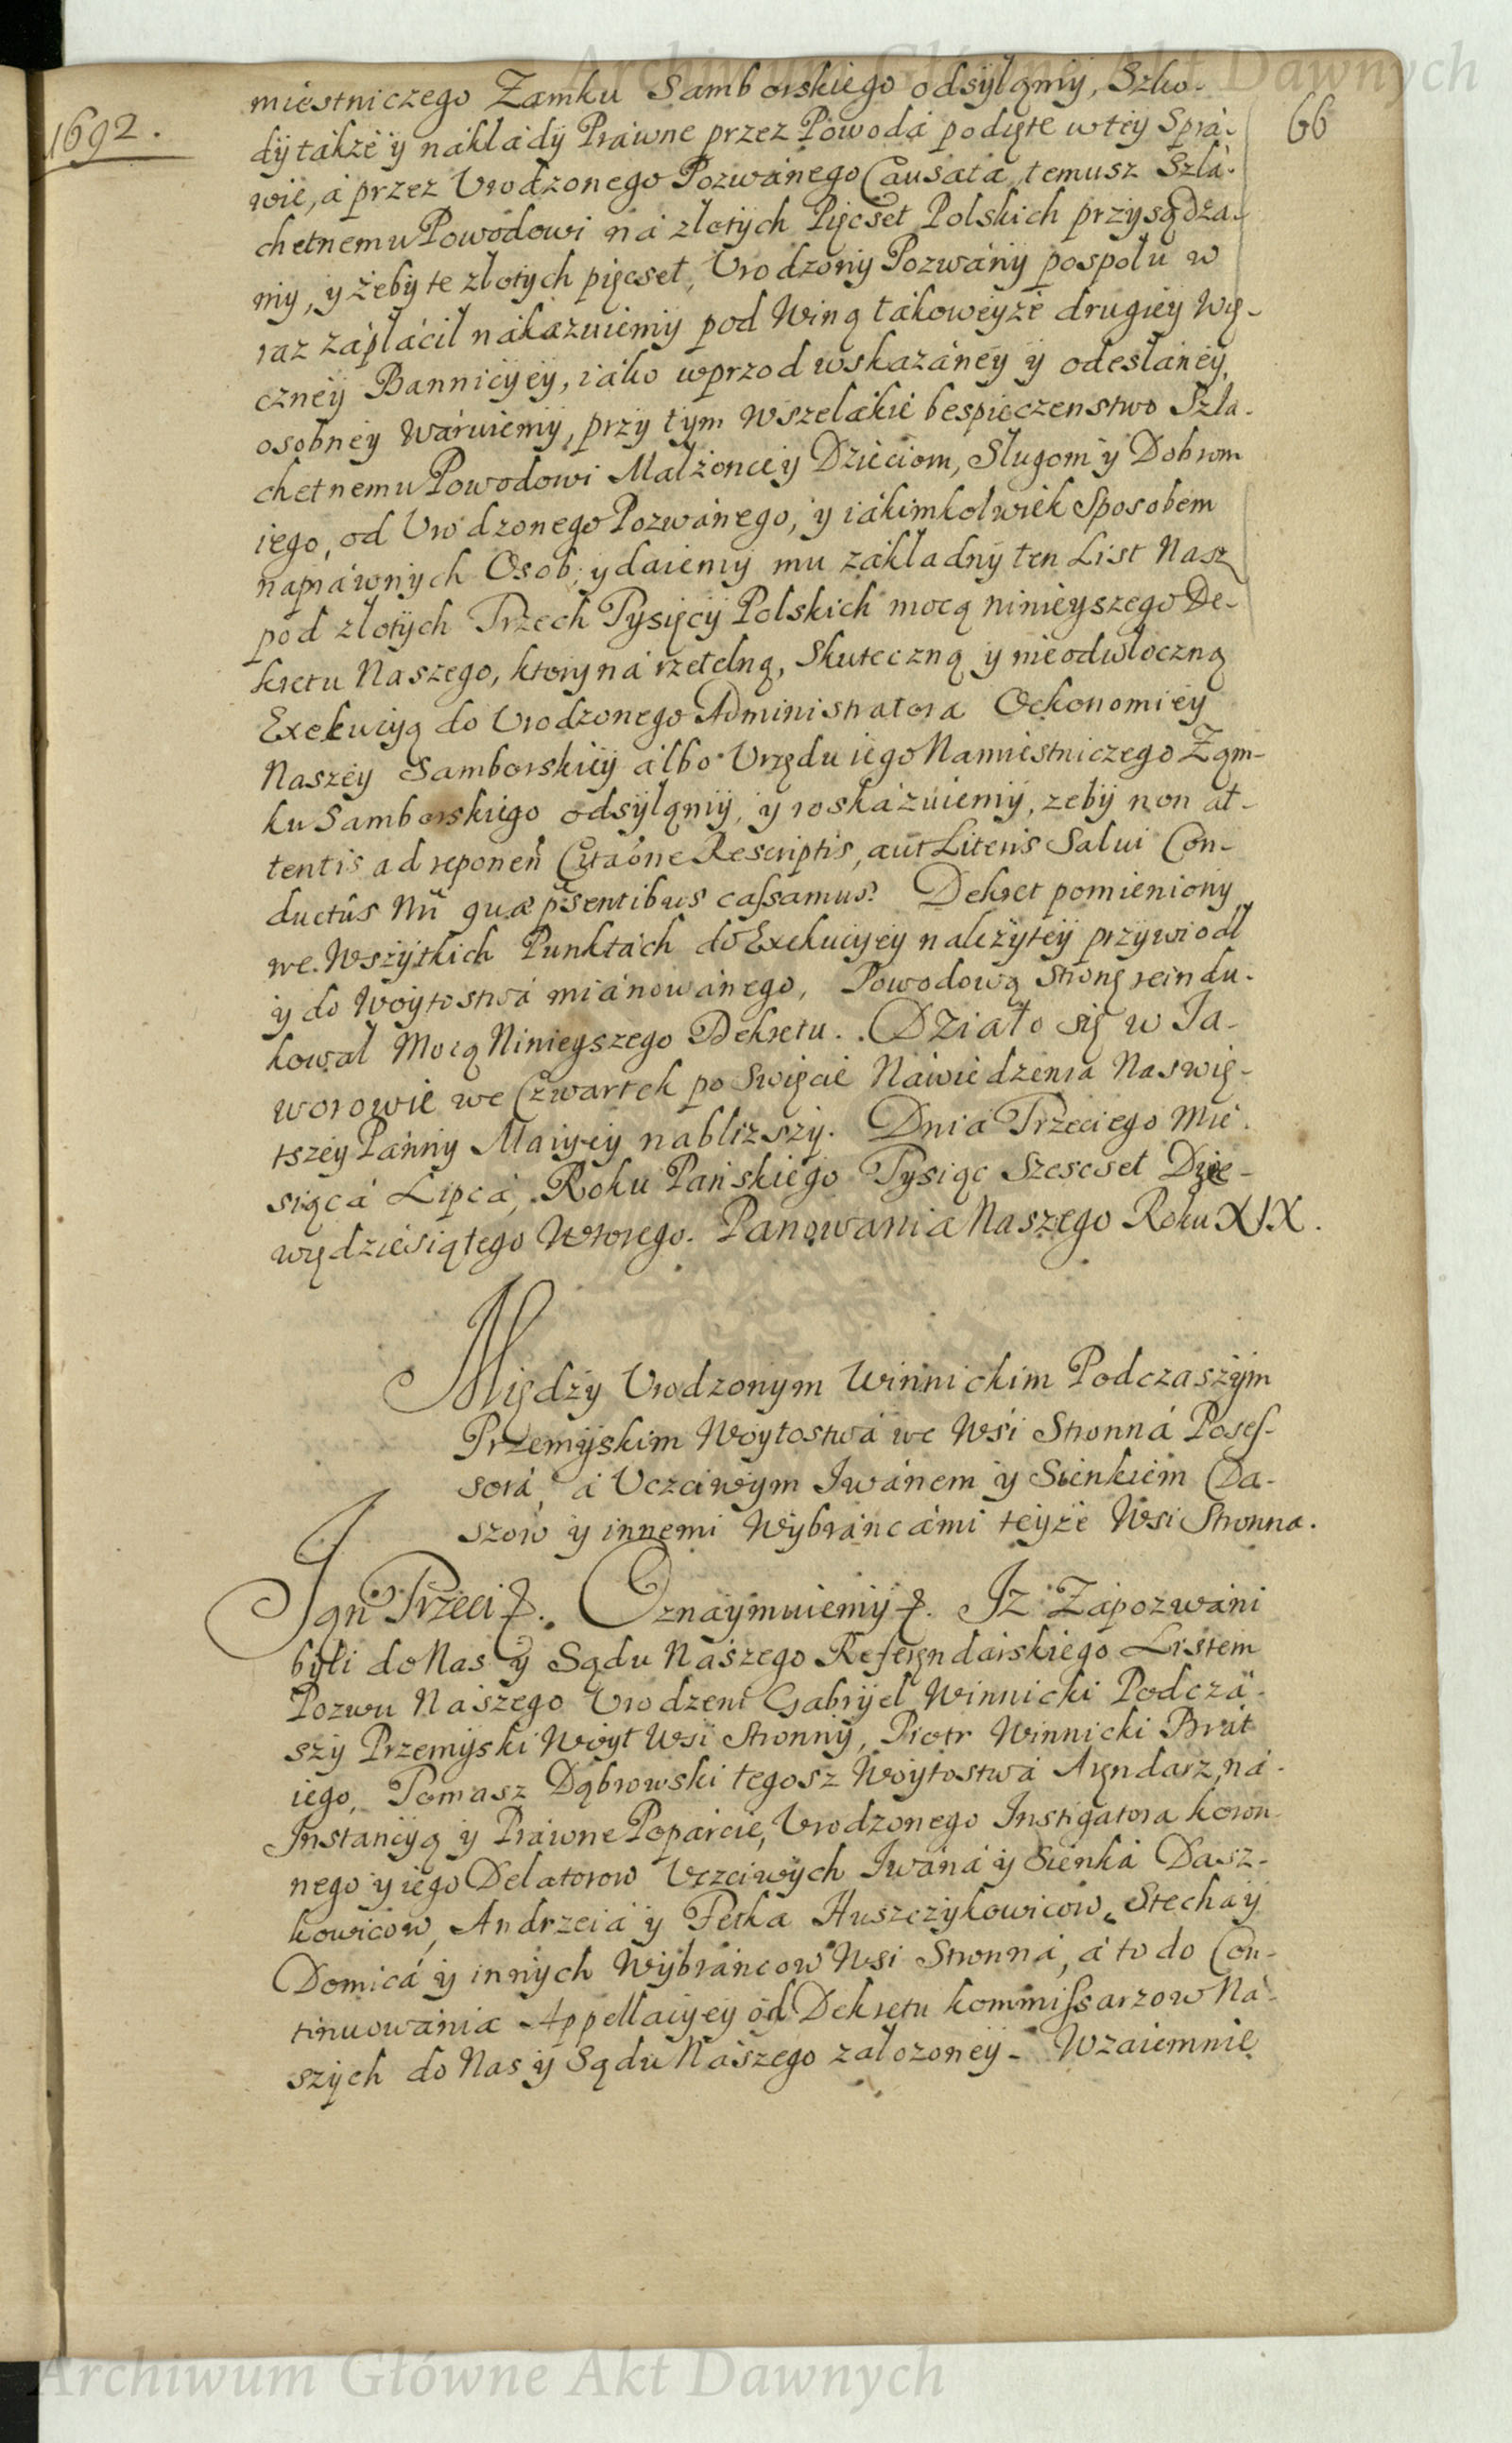 Archiwum Główne Akt Dawnych
1692.
66
miestniczego Zamku Samborskiego odsyłąmy, Szko-
dy tákże y nákłády Práwne przez Powodá podięte w tey Sprá-
wie, á przez Vrodzonego Pozwánego Causata, temusz Szlá-
chetnemu Powodowi ná złotych Pięcset Polskich przysądza-
my, y żeby te złotych pięcset, Vrodzony Pozwány pospołu w
raz zápłácił nákazuiemy pod Winą tákoweyże drugiey Wię-
czney Bannicyey, iáko wprzod wskazáney y odesłáney,
osobney Wáruiemy, przy tym Wszelákie bespieczenstwo Szla-
chetnemu Powodowi Małżonce y Dzieciom, Sługom y Dobrom
iego, od Vrodzonego Pozwánego, y iákimkolwiek Sposobem
naprawnych Osob, y daiemy mu zákładny ten List Nasz
pod złotych Trzech Tysięcy Polskich mocą ninieyszego De-
kretu Naszego, ktory ná rzetelną, Skuteczną y nieodwłoczną
Exekucyą do Vrodzonego Administratora Oekonomiey
Naszey Samborskiey álbo Vrzędu iego Namiestniczego Ząm-
ku Samborskiego odsyłąmy, y roskázuiemy, żeby non at-
tentis ad reponeñ Citaõne Rescriptis, aut Literis Salui Con-
ductûs Nr̃i quæ p̃sentibus cassamus? Dekret pomieniony
we Wszytkich Punktách do Exekucyey należytey przywiodł
y do Woytostwá miánowánego, Powodową Stronę reindu-
kował Mocą Ninieyszego Dekretu. Działo się w Ja-
worowie we Czwartek po Swięcie Náwiedzenia Naswię-
tszey Pánny Maryey nablizszy. Dnia Trzeciego Mie-
siącá Lipcá, Roku Pańskiego Tysiąc Szescset Dzie-
więdziesiątego Wtorego. Panowania Naszego Roku XIX.
Między Vrodzonym Winnickim Podczaszym
Przemyskim Woytostwá we Wsi Stronná Posses-
sorá, á Vczciwym Iwánem y Sienkiem Da-
szow y innemi Wybráncámi teyże Wsi Stronna.
Ján Trzeci &. Oznaymuiemy &. Iż Zápozwáni
byli do Nas y Sądu Nászego Referęndarskiego Listem
Pozwu Nászego Vrodzeni Gabryel Winnicki Podczá-
szy Przemyski Woyt Wsi Stronny, Piotr Winnicki Brát
iego, Tomasz Dąbrowski tegosz Woytostwá Aręndarz, ná
Instáncyą y Práwne Popárcie, Vrodzonego Instigatora koron-
nego y iego Delatorow Vczciwych Iwáná y Sienká Dasz-
kowicow, Andrzeiá y Fetka Huszczykowicow, Stecha y
Domicá y innych Wybráncow Wsi Stronná, á to do Con-
tinuowánia Appellacyey od Dekretu kommissarzow Ná-
szych do Nas y Sądu Nászego załozoney. Wzaiemnie
Archiwum Główne Akt Dawnych